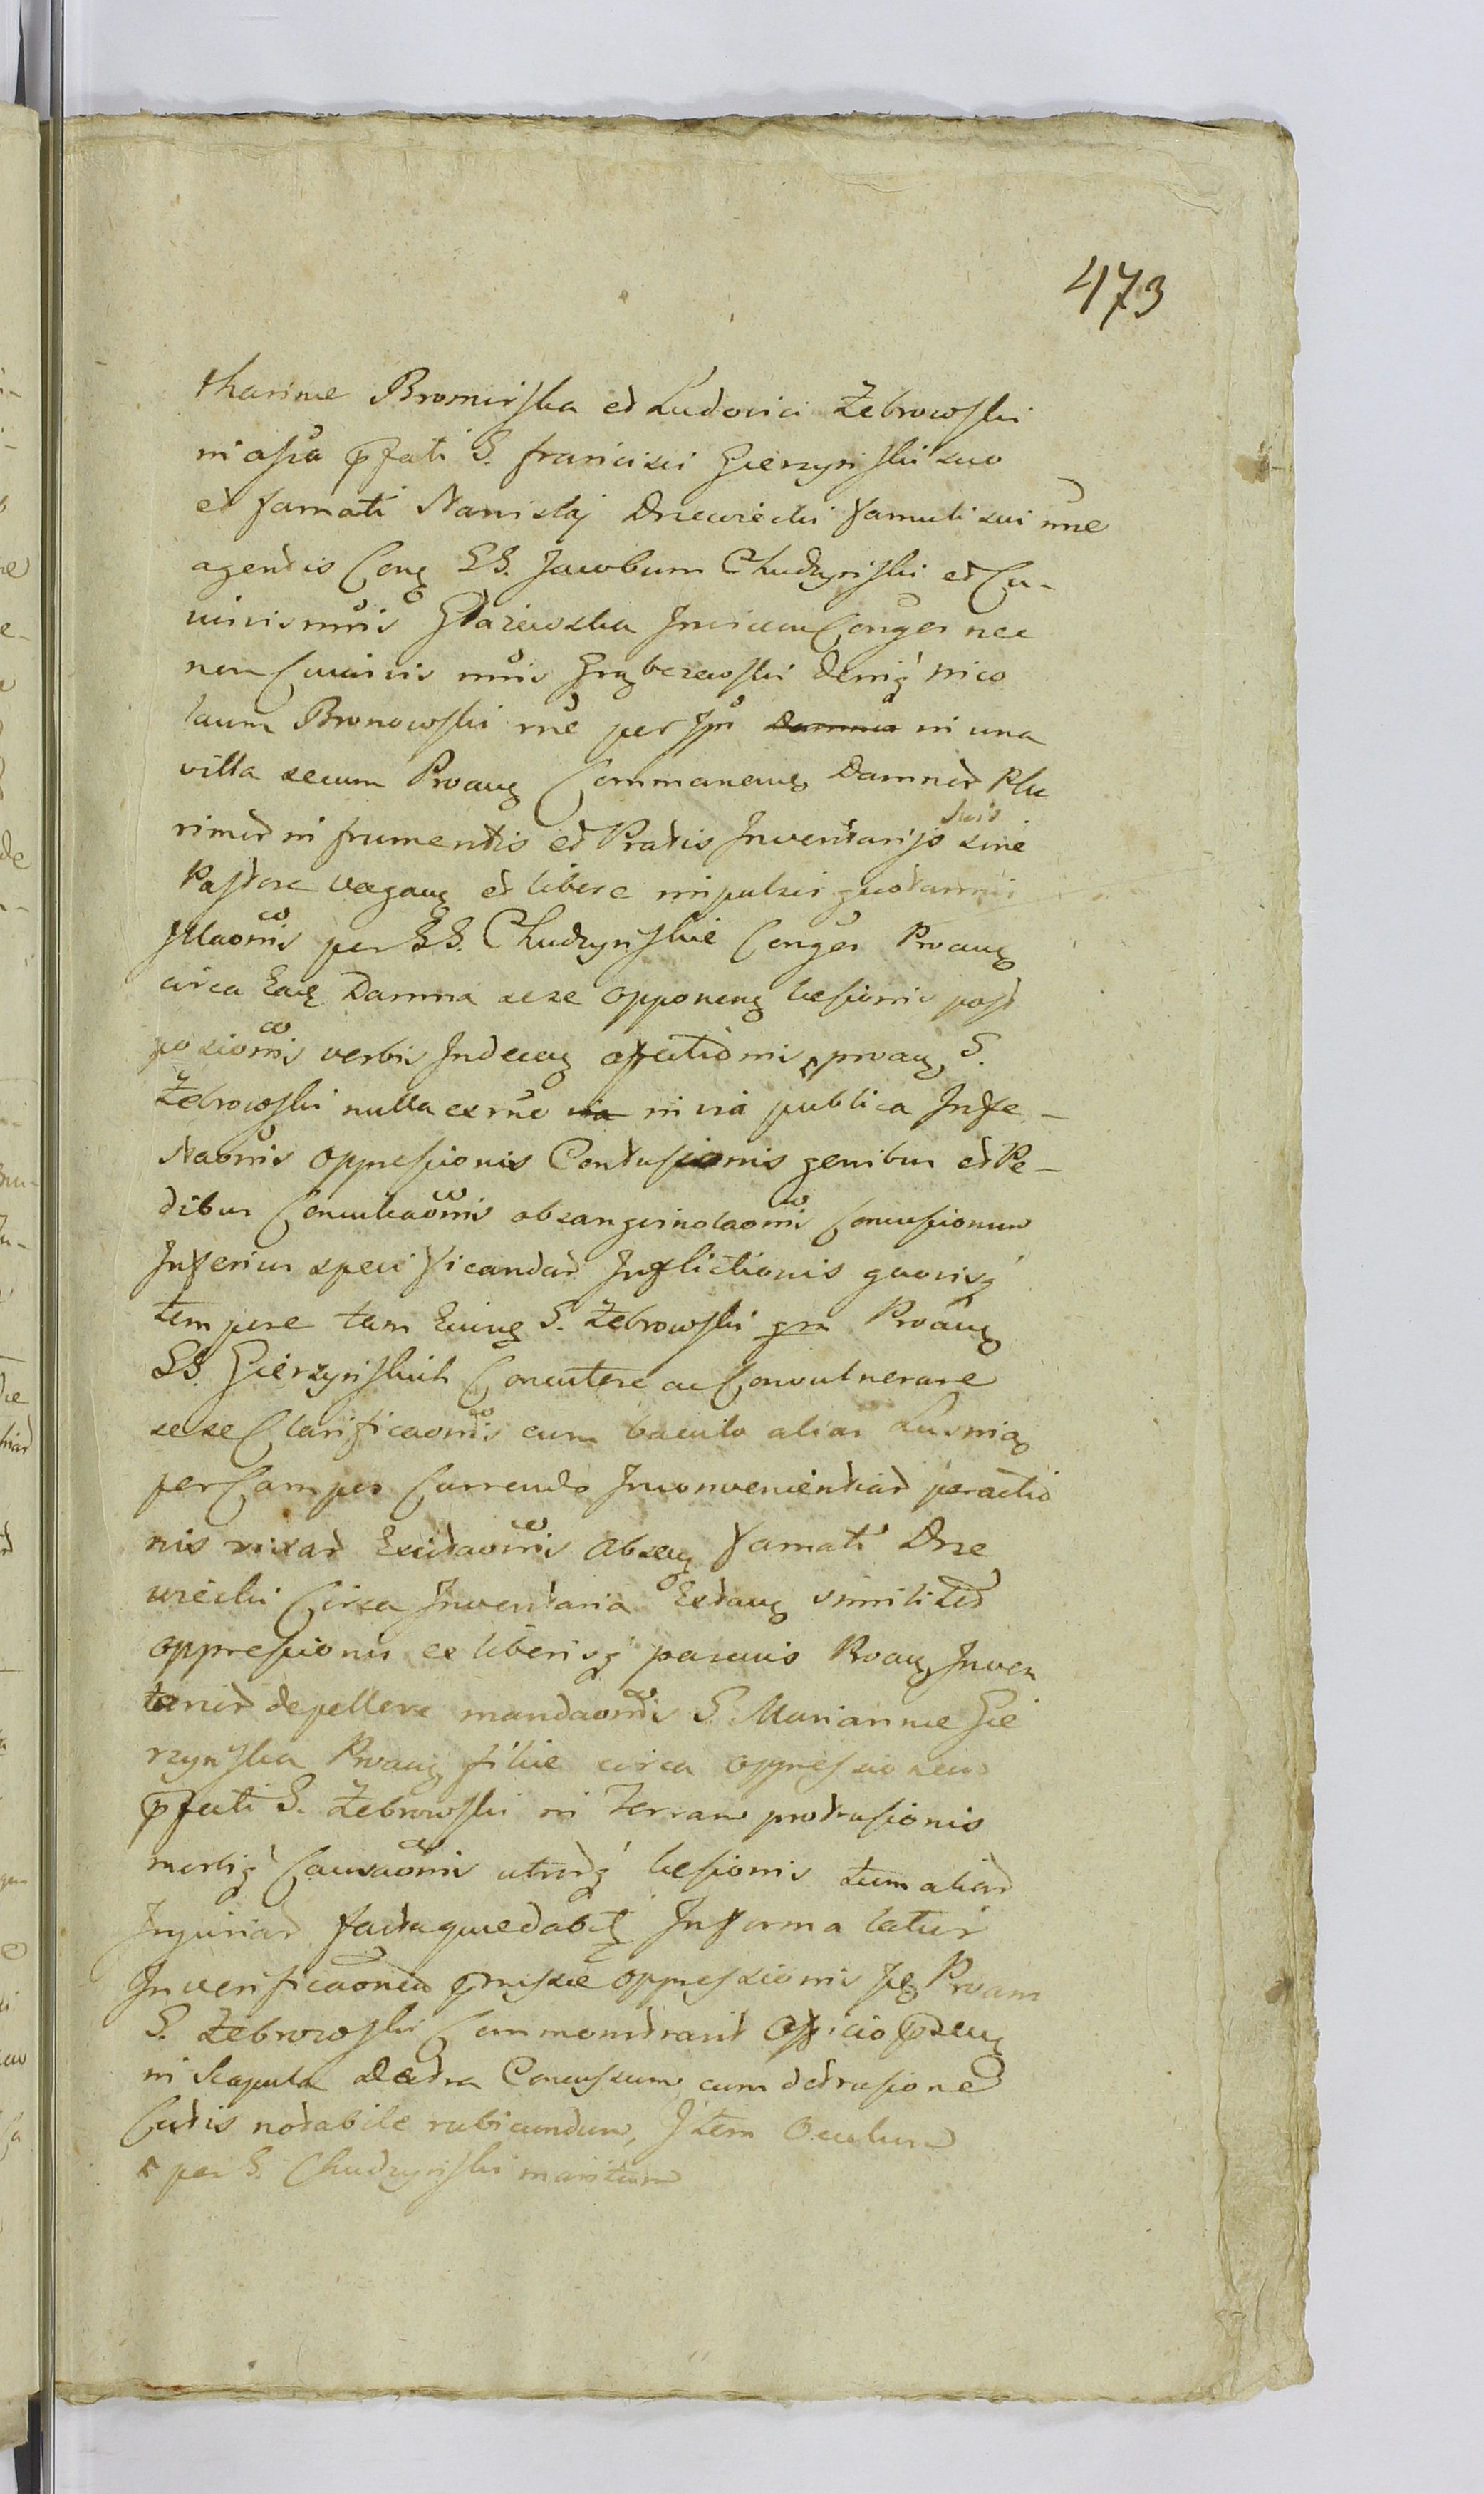 473
tharinæ Bromirska et Ludovici Żebrowski
in assa pfati G. Francisci Gierzyński suo
et famati Stanislaj Drzewiecki famuli sui nne
agentis Cong GG. Jacobum Chudzyński et Cu-
iusvis nnis Głażewska Invicem Conges nec
non Cuiusvis nnis Grąbczewski deniq Nico
laum Bronowski rne per Ipm in una
villa secum Proang Commaneng Damnor Plu
rimor in frumentis et Pratis Inventarijs suis sine
Pastore vagang et libere impulsis quotannis
Illaonis per GG. Chudzyńskie Conges Proang
circa Eaq Damna sese opponeng læsionis post
posionis verbis Indeceng affectionis proang G.
Żebrowski nulla ex rne in via publica Infe-
staonis oppressionis Contusionis genibus et Pe-
dibus Conculcaonis obsanguinolaonis Concussionum
Inferius specificandar Inflictionis quovisq
tempore tam Euing G. Żebrowski qm Proang
GG. Gierzyńskich Concutere ac Convulnerare
sese Clarificaonis cum baculo alias Lusnią
per Campos Currendo Inconvenientiar peractio
nis rixar Excitaonis Abseng famati Drze
wiecki Circa Inventaria Extang similiter
oppressionis ex liberisq pascuis Proang Inven
tarior depellere mandaonis G. Mariannæ Gie
rzyńska Proang filiæ circa oppressionem
pfati G. Żebrowski in Terram protrusionis
morbiq Causaonis utriusq læsionis tum aliar
Injuriar factaquedabit Informa latius
In verificaonem pmissæ oppressionis Ips Proans
G. Żebrowski Commonstravit Officio pseng
in Scapula dextra Concussum cum detrusione
Cutis notabile rubicundum, Item Oculum
per G. Chudzyński maritum